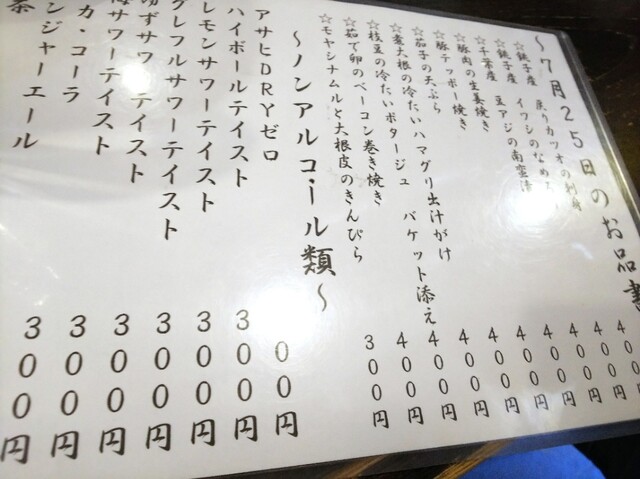 ～7月25日のお品書
☆銚子産 戻りカツオの刺身 400円
☆銚子産 イワシのなめ 400円
☆千葉産 豆アジの南蛮漬 400円
☆豚肉の生姜焼き 400円
☆豚テッポー焼き 400円
☆茄子の天ぷら 400円
☆煮大根の冷たいハマグリ出汁がけ 400円
☆枝豆の冷たいポタージュ バケット添え 400円
☆茹で卵のベーコン巻き焼き 400円
☆モヤシナムルと大根皮のきんぴら 300円
～ノンアルコール類～
アサヒDRYゼロ 00円
ハイボールテイスト 300円
レモンサワーテイスト 300円
グレフルサワーテイスト 300円
ゆずサワーテイスト 300円
サワーテイスト 300円
カ・コーラ 300円
ンジャーエール
茶